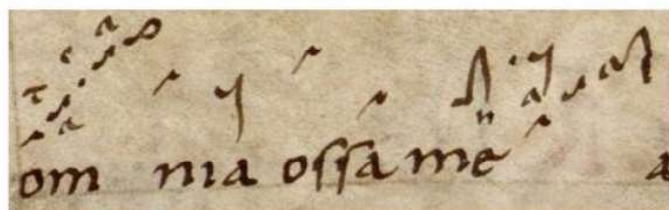 om nia oſſa me a